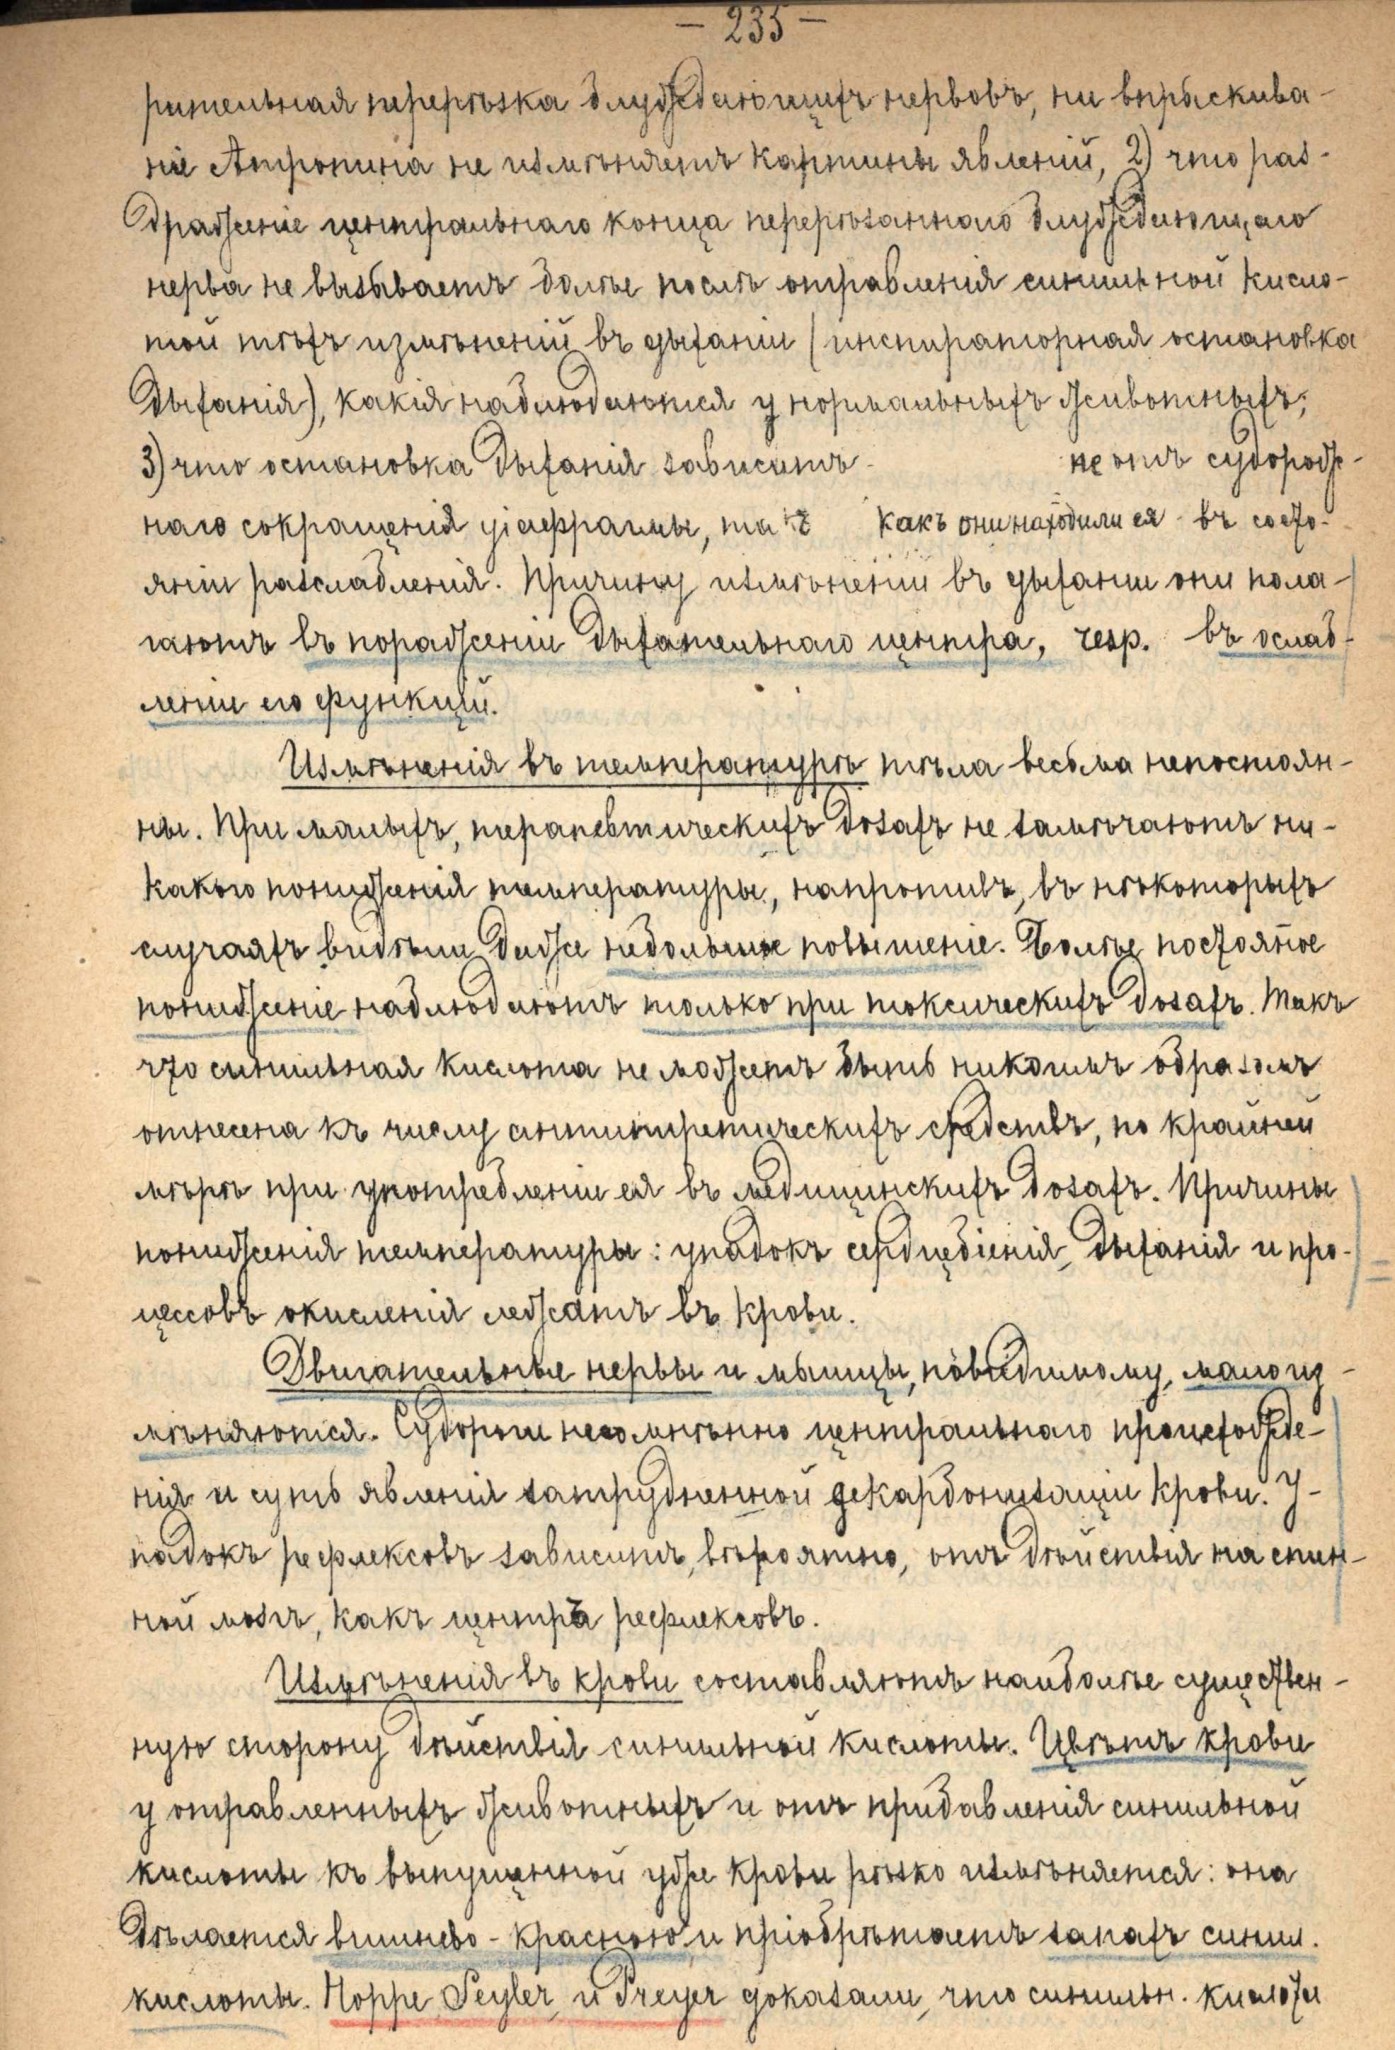 — 235 —
рительная перерѣзка блуждающихъ нервовъ, ни впрыскива-
ніе Атропина не измѣняетъ картины явленій, 2) что раз-
драженіе центральнаго конца перерѣзаннаго блуждающаго
нерва не вызываетъ болѣе послѣ отравленія синильной кисло-
той тѣхъ измѣненій въ дыханіи (инспираторная остановка
дыханія), какія наблюдаются у нормальныхъ животныхъ;
3) что остановка дыханія зависитъ не отъ судорож-
наго сокращенія діафрагмы, такъ какъ они находили ея въ состо-
яніи разслабленія. Причину измѣненій въ дыханіи они пола-
гаютъ въ пораженіи дыхательнаго центра, resp. въ ослаб-
леніи его функцій.
Измѣненія въ температурѣ тѣла весьма непостоян-
ны. При малыхъ, терапевтическихъ дозахъ не замѣчаютъ ни-
какого пониженія температуры, напротивъ, въ нѣкоторыхъ
случаяхъ видѣли даже небольшое повышеніе. Болѣе постояное
пониженіе наблюдаютъ только при токсическихъ дозахъ. Такъ
что синильная кислота не можетъ быть никоимъ образомъ
отнесена къ числу антипиретическихъ средствъ, по крайней
мѣрѣ при употребленіи ея въ медицинскихъ дозахъ. Причины
пониженія температуры: упадокъ сердцебіенія, дыханія и про-
цессовъ окисленія лежатъ въ крови.
Двигательные нервы и мышцы, повидимому, мало из-
мѣняются. Судороги несомнѣнно центральнаго происхожде-
нія и суть явленія затрудненной декарбонизаціи крови. У-
падокъ рефлексовъ зависитъ, вѣроятно, отъ дѣйствія на спин-
ной мозгъ, какъ центръ рефлексовъ.
Измѣненія въ крови составляютъ наиболѣе существен-
ную сторону дѣйствія синильной кислоты. Цвѣтъ крови
у отравленныхъ животныхъ и отъ придавленія синильной
кислоты къ выпущенной уже крови рѣзко измѣняется: она
дѣлается вишнево-красною и пріобрѣтаетъ запахъ синил.
кислоты. Hoppe Seyler и Preyer доказали, что синильн. кислота